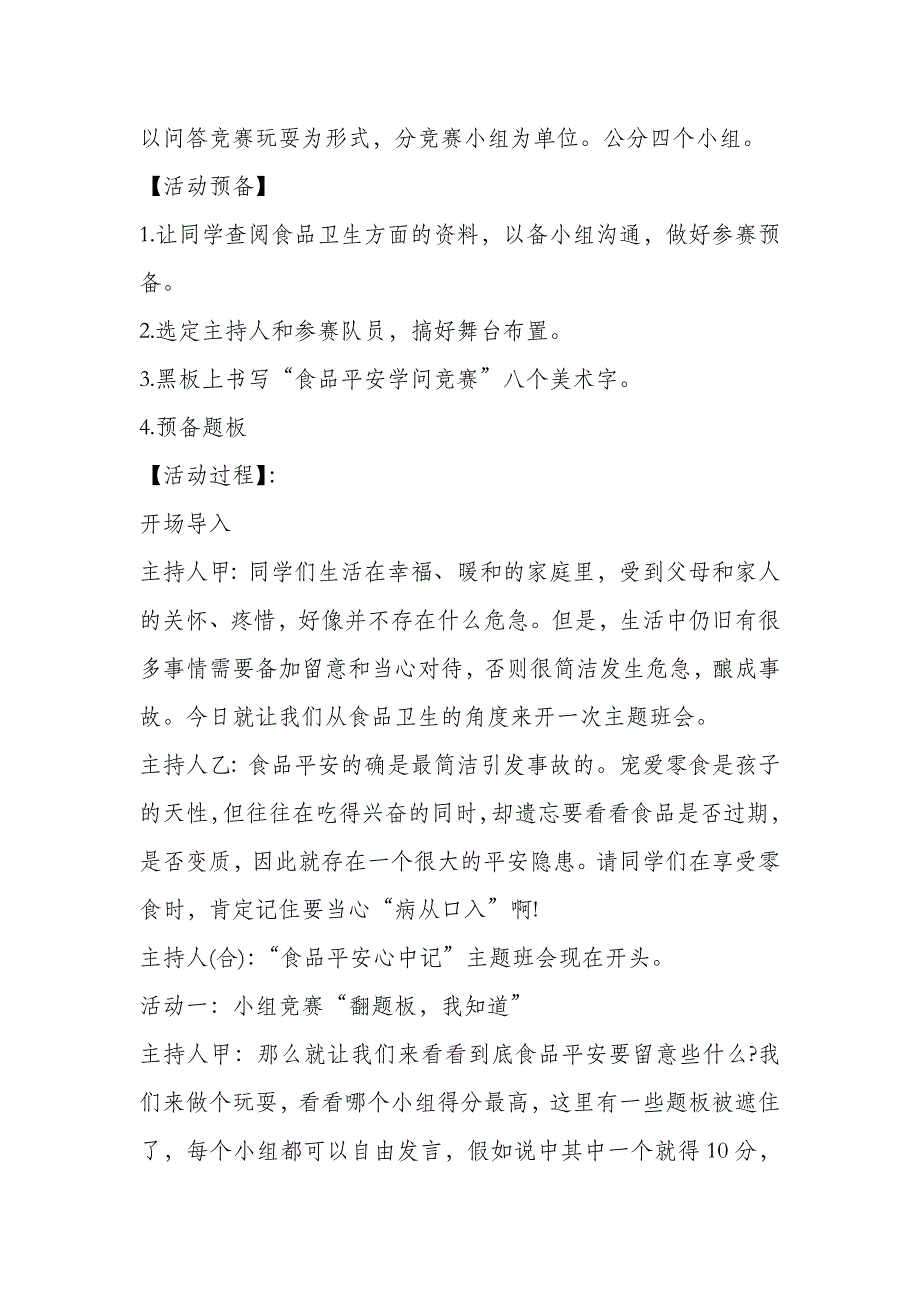 以问答竞赛玩耍为形式，分竞赛小组为单位。公分四个小组。
【活动预备】
1.让同学查阅食品卫生方面的资料，以备小组沟通，做好参赛预
备。
2.选定主持人和参赛队员，搞好舞台布置。
3.黑板上书写“食品平安学问竞赛”八个美术字。
4.预备题板
【活动过程】：
开场导入
主持人甲：同学们生活在幸福、暖和的家庭里，受到父母和家人
的关怀、疼惜，好像并不存在什么危急。但是，生活中仍旧有很
多事情需要备加留意和当心对待，否则很简洁发生危急，酿成事
故。今日就让我们从食品卫生的角度来开一次主题班会。
主持人乙：食品平安的确是最简洁引发事故的。宠爱零食是孩子
的天性，但往往在吃得兴奋的同时，却遗忘要看看食品是否过期，
是否变质，因此就存在一个很大的平安隐患。请同学们在享受零
食时，肯定记住要当心“病从口入”啊!
主持人(合)：“食品平安心中记”主题班会现在开头。
活动一：小组竞赛“翻题板，我知道”
主持人甲：那么就让我们来看看到底食品平安要留意些什么?我
们来做个玩耍，看看哪个小组得分最高，这里有一些题板被遮住
了，每个小组都可以自由发言，假如说中其中一个就得10分，